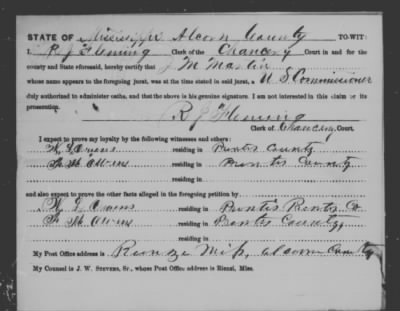 STATE OF Mississippi Alcorn County TO-WIT:
I, R J Fleming Clerk of the Chancery Court in and for the
county and State aforesaid, hereby certify that J M Martin
whose name appears to the foregoing jurat, was at the time stated in said jurat, a U S Commissioner
duly authorized to administer oaths, and that the above is his genuine signature. I am not interested in this claim or its
prosecution.
R J Fleming
Clerk of Chancery Court.
I expect to prove my loyalty by the following witnesses and others:
W L Owens residing in County
F M Owens residing in County
residing in
and also expect to prove the other facts alleged in the foregoing petition by
W L Owens residing in Co
F M Owens residing in County
residing in
My Post Office address is Rienzi Miss, Alcorn County
My Counsel is J. W. STEVENS, Sr., whose Post Office address is Rienzi, Miss.